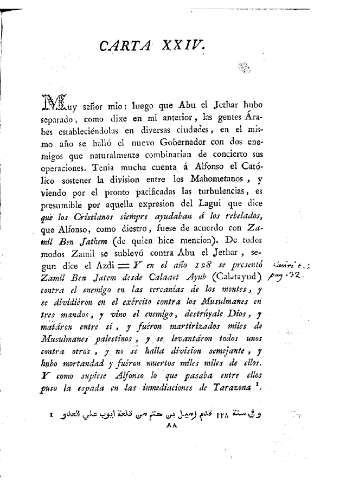 CARTA XXIV.
Muy señor mio: luego que Abu el Jethar hubo
separado, como dixe en mi anterior, las gentes Ára-
bes estableciéndolas en diversas ciudades, en el mis-
mo año se halló el nuevo Gobernador con dos ene-
migos que naturalmente combinarian de concierto sus
operaciones. Tenia mucha cuenta á Alfonso el Cató-
lico sostener la division entre los Mahometanos, y
viendo por el pronto pacificadas las turbulencias, es
presumible por aquella expresion del Lagui que dice
que los Cristianos siempre ayudaban á los rebelados,
que Alfonso, como diestro, fuese de acuerdo con Za-
mil Ben Jathem (de quien hice mencion). De todos
modos Zamil se sublevó contra Abu el Jethar, se-
gun dice el Azdi = Y en el año 128 se presentó
Zamil Ben Jatem desde Calaat Ayub (Calatayud)
pag. 32
contra el enemigo en las cercanías de los montes, y
se dividiéron en el exército contra los Musulmanes en
tres mandos, y vino el enemigo, destrúyale Dios, y
matáren entre sí, y fuéron martirizados miles de
Musulmanes palestinos, y se levantáron todos unos
contra otros, y no se halla division semejante, y
hubo mortandad y fuéron muertos miles miles de ellos.
Y como supiese Alfonso lo que pasaba entre ellos
puso la espada en las inmediaciones de Tarazona 1.
1 وفي سنة ١٢٨ قدم زميل بن حتم من قلعة ايوب علي العدو
٨٨